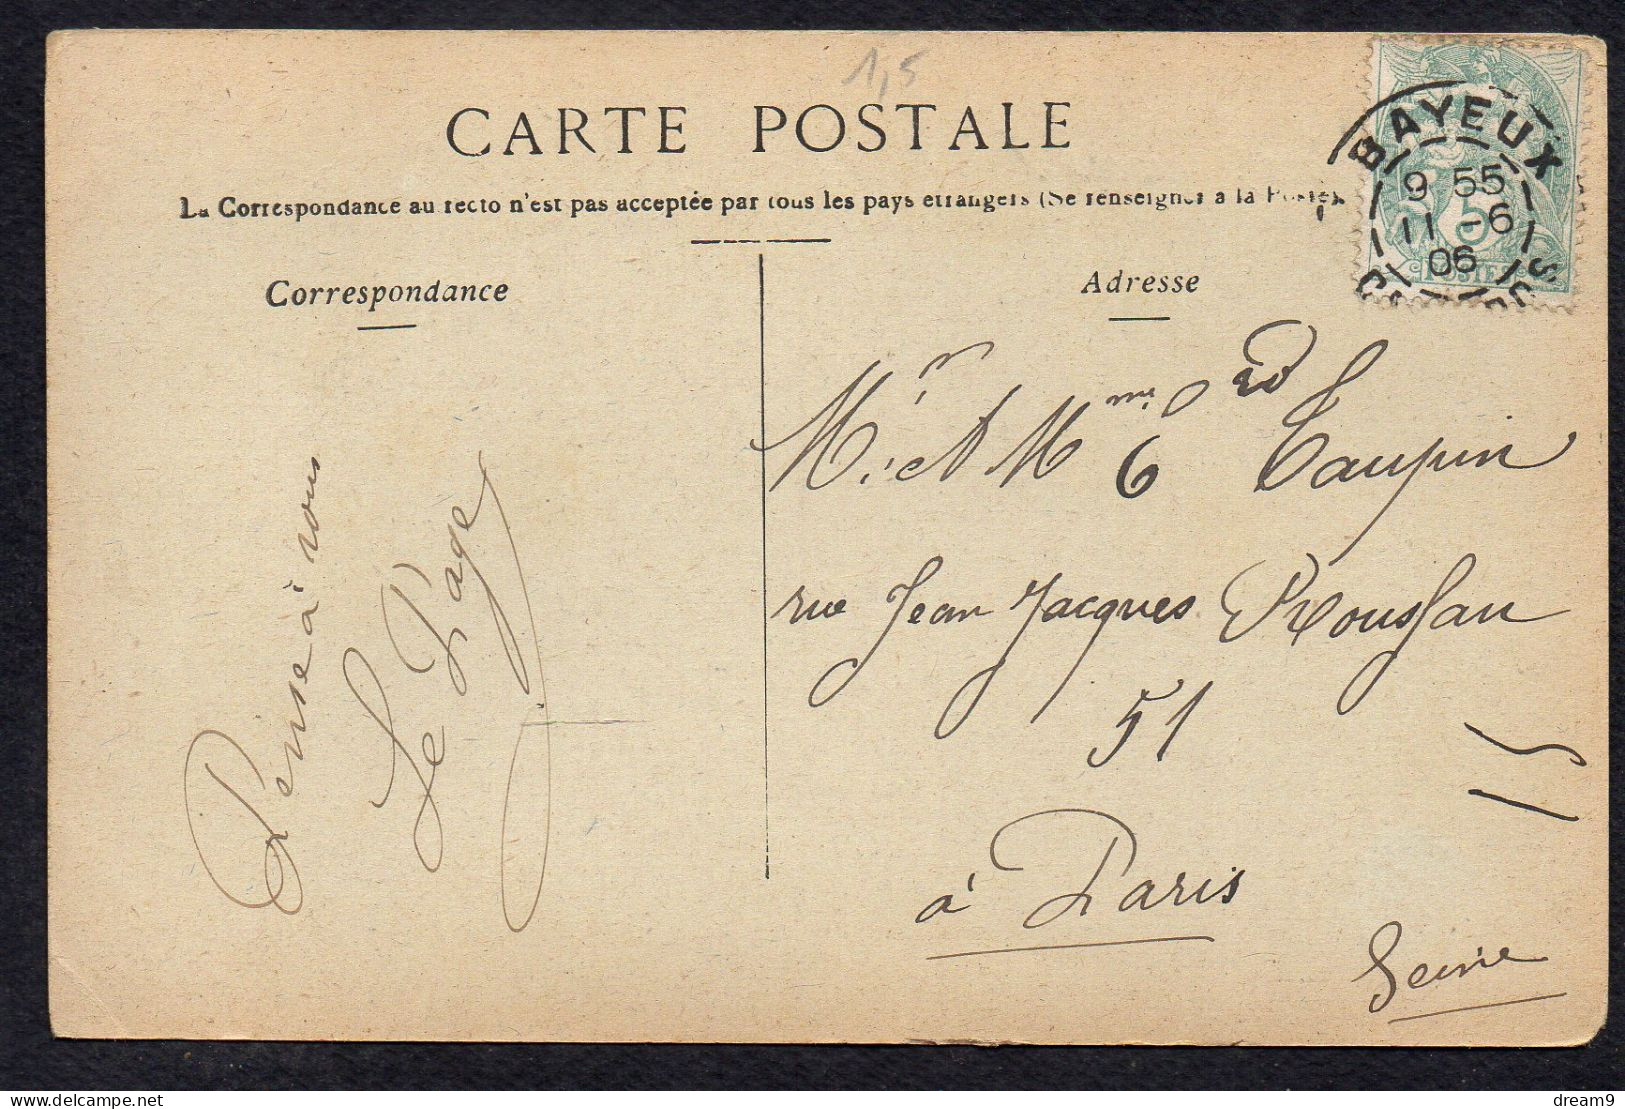 1,5
CARTE POSTALE
La Correspondance au recto n'est pas acceptée par tous les pays étrangers (Se renseigner à la Poste).
Correspondance
Adresse
BAYEUX
9 55
11 -6
06
5
POSTE
Mr. et Mme Ed Taupin
6
rue Jean Jacques Roussau
51
à Paris
Seine
Pensé à vous
Le Page
delcampe.net
dream9